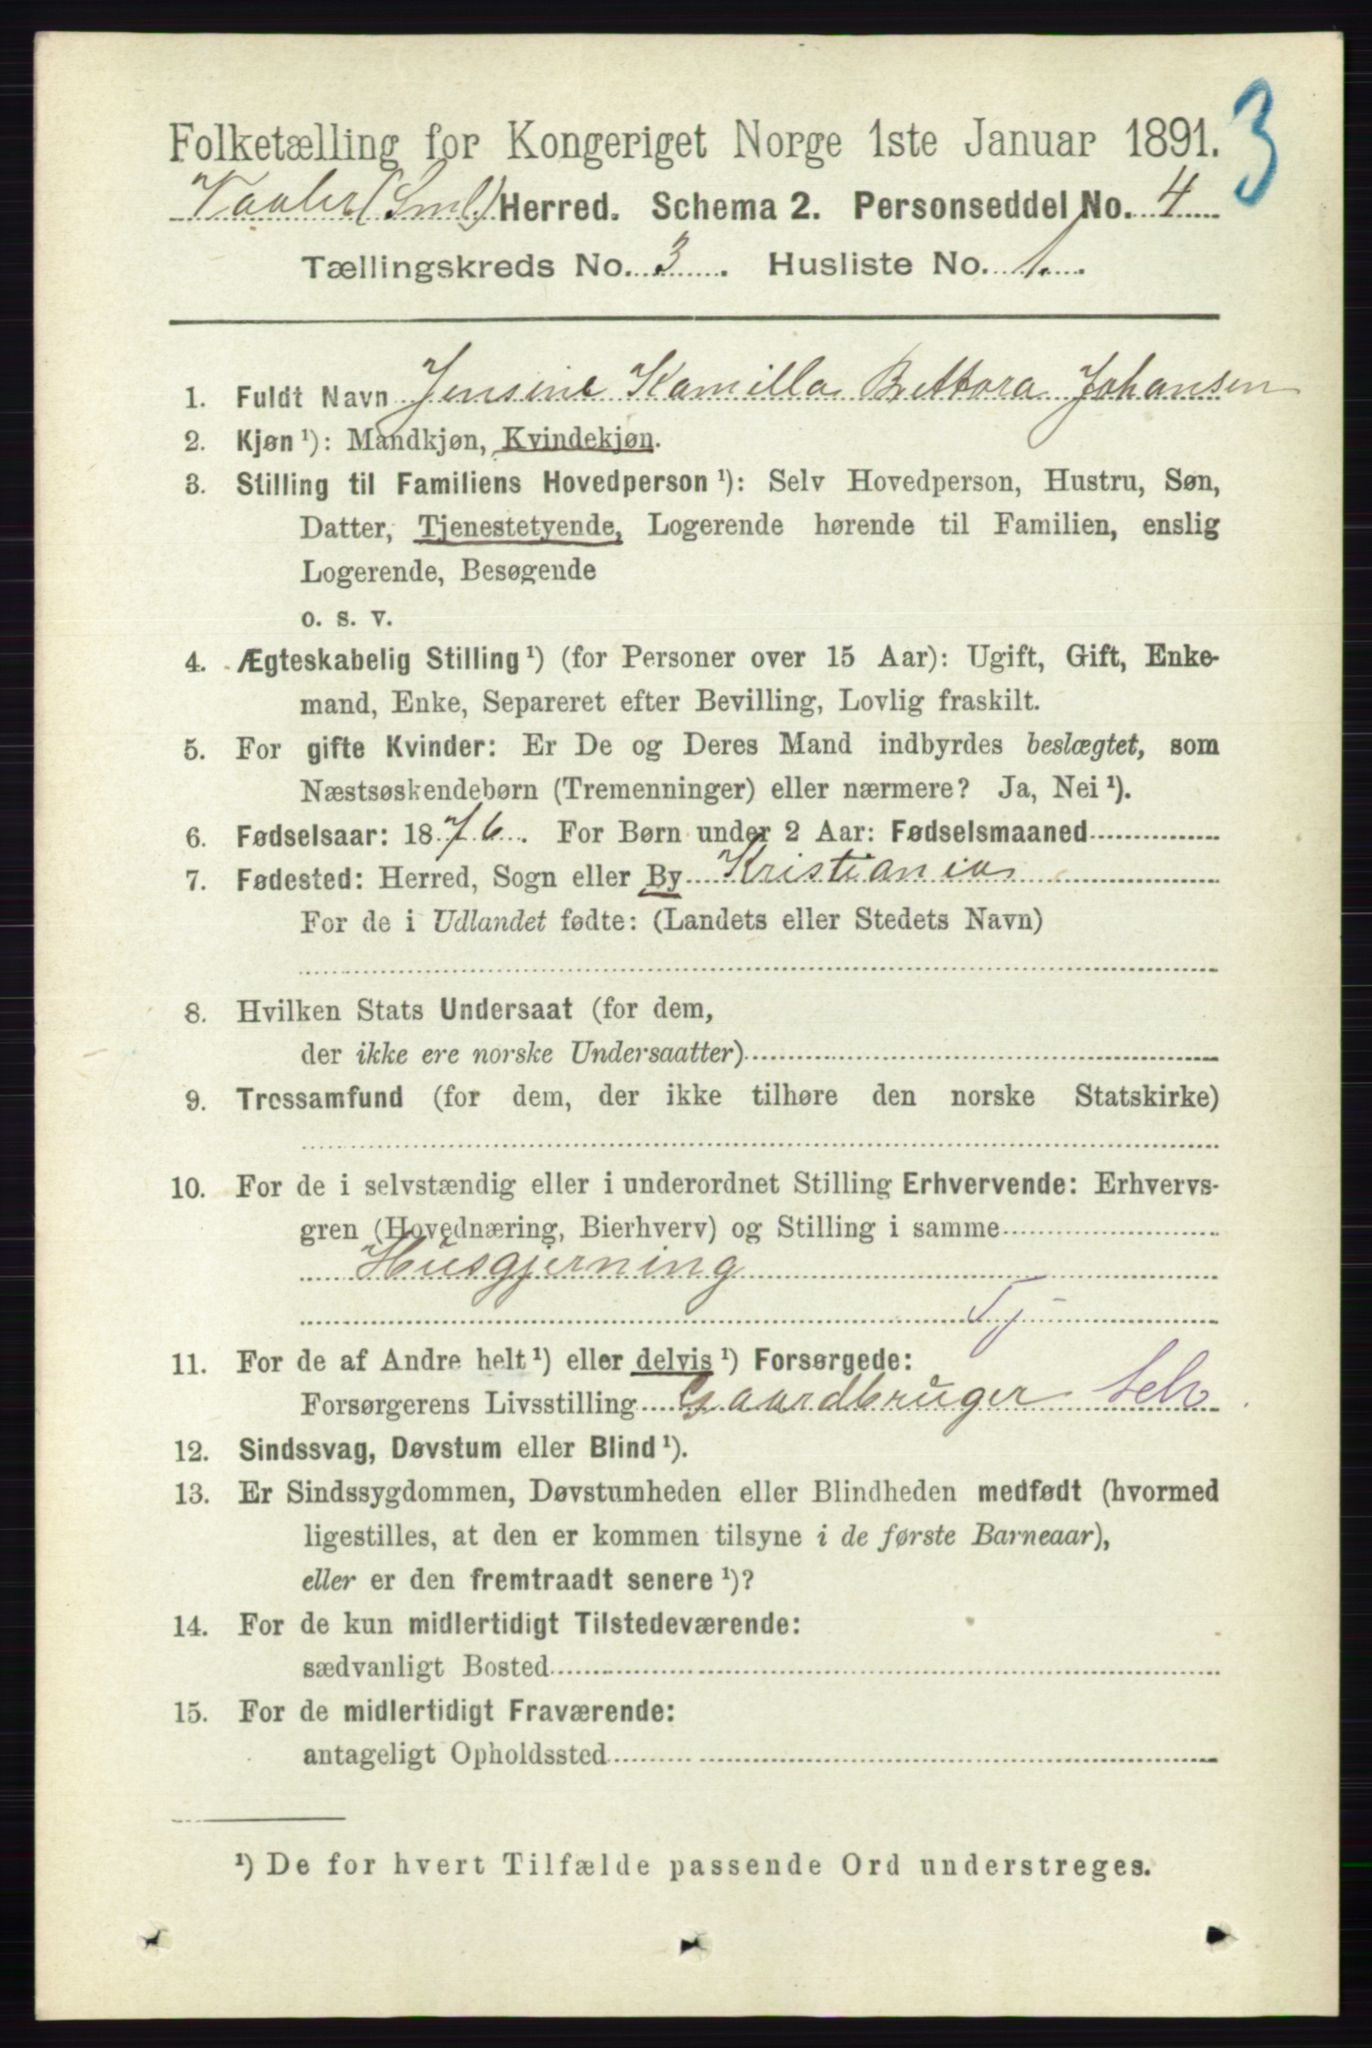 3
Folketælling for Kongeriget Norge 1ste Januar 1891.
Vaaler (Sml.) Herred. Schema 2. Personseddel No. 4
Tællingskreds No. 3. Husliste No. 1.
1. Fuldt Navn Jensine Kamilla Bettora Johansen
2. Kjøn ¹): Mandkjøn, Kvindekjøn.
3. Stilling til Familiens Hovedperson ¹): Selv Hovedperson, Hustru, Søn,
Datter, Tjenestetyende, Logerende hørende til Familien, enslig
Logerende, Besøgende
o. s. v.
4. Ægteskabelig Stilling ¹) (for Personer over 15 Aar): Ugift, Gift, Enke-
mand, Enke, Separeret efter Bevilling, Lovlig fraskilt.
5. For gifte Kvinder: Er De og Deres Mand indbyrdes beslægtet, som
Næstsøskendebørn (Tremenninger) eller nærmere? Ja, Nei ¹).
6. Fødselsaar: 1876. For Børn under 2 Aar: Fødselsmaaned
7. Fødested: Herred, Sogn eller By Kristiania
For de i Udlandet fødte: (Landets eller Stedets Navn)
8. Hvilken Stats Undersaat (for dem,
der ikke ere norske Undersaatter)
9. Trossamfund (for dem, der ikke tilhøre den norske Statskirke)
10. For de i selvstændig eller i underordnet Stilling Erhvervende: Erhvervs-
gren (Hovednæring, Bierhverv) og Stilling i samme
Husgjerning
Tj
11. For de af Andre helt ¹) eller delvis ¹) Forsørgede:
Forsørgerens Livsstilling Gaardbruger Selv
12. Sindssvag, Døvstum eller Blind ¹).
13. Er Sindssygdommen, Døvstumheden eller Blindheden medfødt (hvormed
ligestilles, at den er kommen tilsyne i de første Barneaar),
eller er den fremtraadt senere ¹)?
14. For de kun midlertidigt Tilstedeværende:
sædvanligt Bosted
15. For de midlertidigt Fraværende:
antageligt Opholdssted
¹) De for hvert Tilfælde passende Ord understreges.